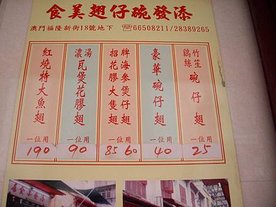 添發碗仔翅美食
澳門福隆新街18號地下 ☎66508211/28389265
竹笙
雞絲
碗仔翅
一位用
25
豪華碗仔翅
一位用
40
招牌
海參煲仔翅
花膠大隻翅
一位用
85 60
濃湯
瓦煲花膠翅
一位用
90
紅燒特大魚翅
一位用
190